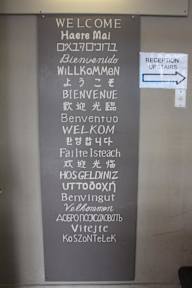 WELCOME
Haere Mai
Bienvenido
WiLLKOMMEN
ようこそ
BIENVENUE
歡迎光臨
Benvenuto
WELKOM
환영합니다
Failte Isteach
欢迎光临
HOS GELDINIZ
υττοδοχή
Benvingut
Velkommen
Vitejte
KöSZöNTeLeK
RECEPTION
UPSTAIRS